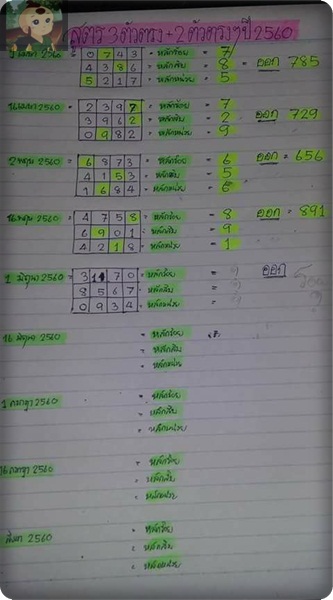 สูตร 3 ตัวตรง + 2 ตัวตรงๆ ปี 2560
1 เมษา 2560 = 0 7 4 3 = หลักร้อย = 7
4 3 8 6 = หลักสิบ = 8 = ออก = 785
5 2 1 7 = หลักหน่วย = 5
16 เมษา 2560 = 2 3 9 7 = หลักร้อย = 7
3 9 6 2 = หลักสิบ = 2 ออก = 729
0 9 8 2 = หลักหน่วย = 9
2 พฤษ 2560 = 6 8 7 3 = หลักร้อย = 6 = ออก = 656
4 1 5 3 = หลักสิบ = 5
1 6 8 4 = หลักหน่วย = 6
16 พฤษ 2560 = 4 7 5 8 = หลักร้อย = 8 ออก = 891
6 9 0 1 = หลักสิบ = 9
4 2 1 8 = หลักหน่วย = 1
1 มิถุนา 2560 = 3 1 7 0 = หลักร้อย = ออก
8 5 6 7 = หลักสิบ =
0 9 3 4 = หลักหน่วย =
16 มิถุนา 2560 = หลักร้อย
= หลักสิบ
= หลักหน่วย
1 กรกฎา 2560 = หลักร้อย
= หลักสิบ
= หลักหน่วย
16 กรกฎา 2560 = หลักร้อย
= หลักสิบ
= หลักหน่วย
2560 = หลักร้อย
= หลักสิบ
= หลักหน่วย